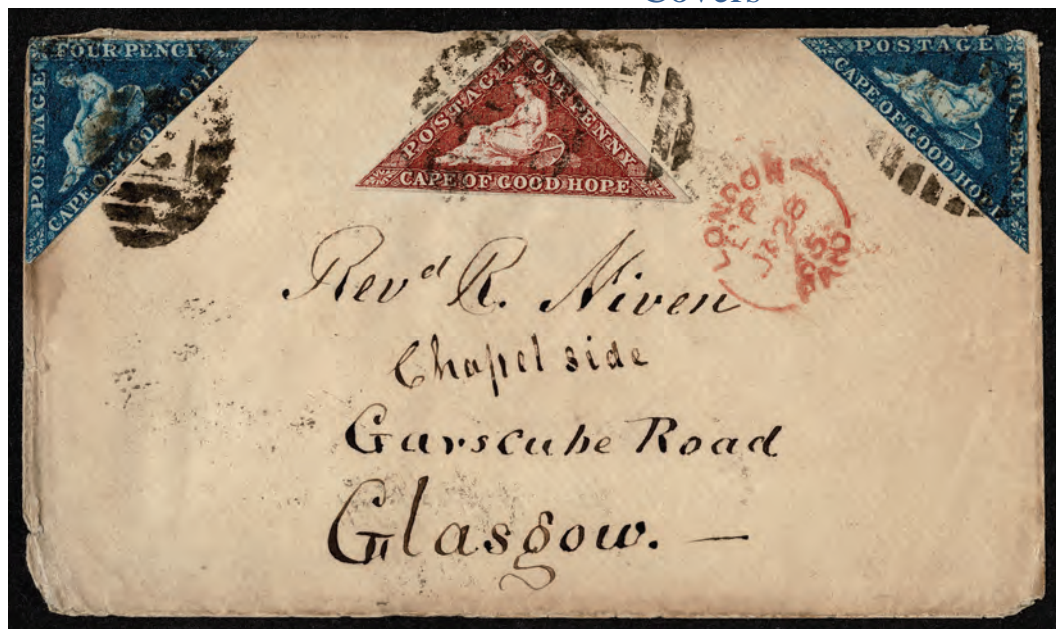 Covers
FOUR PENCE
POSTAGE
CAPE OF GOOD HOPE
POSTAGE
ONE PENNY
CAPE OF GOOD HOPE
POSTAGE
FOUR PENCE
CAPE OF GOOD HOPE
LONDON
JA 28
65
PAID
Revd R. Niven
Chapel side
Garscube Road
Glasgow. —